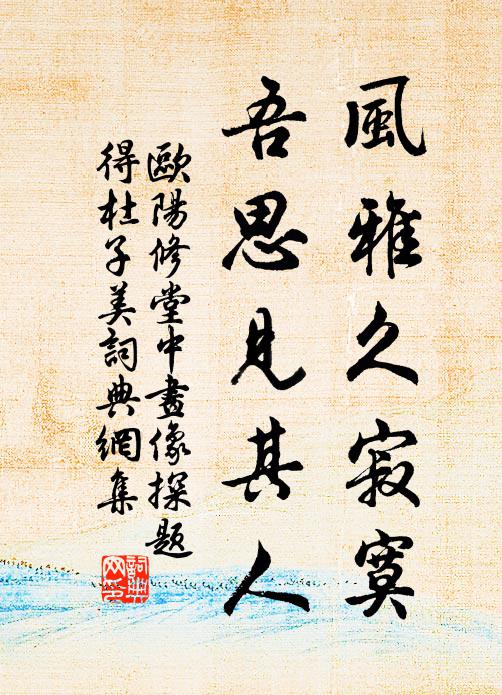 風雅久寂寞
吾思見其人
歐陽修堂中畫像探題
得杜子美詞典網集